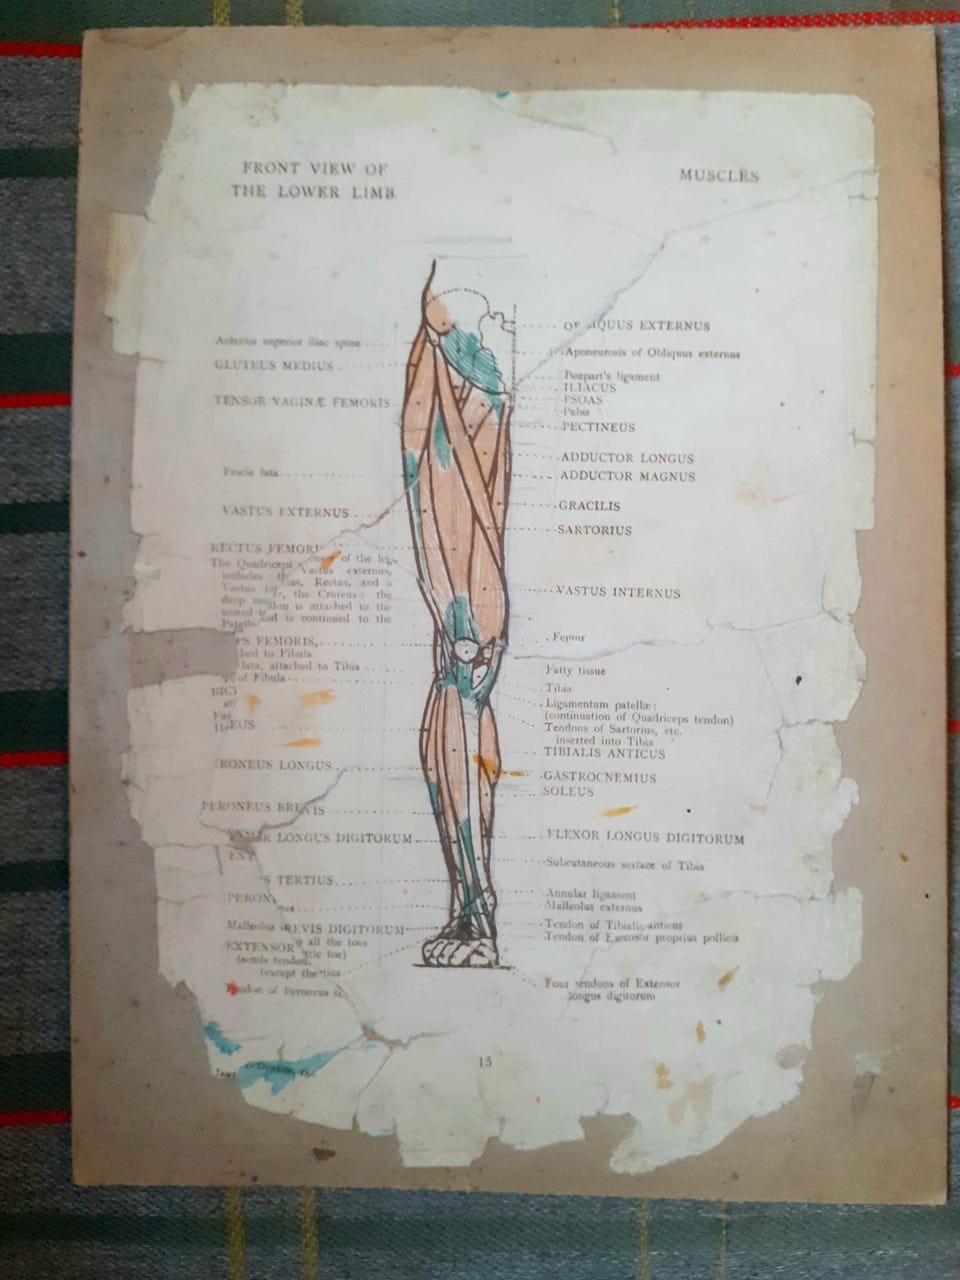 FRONT VIEW OF
THE LOWER LIMB
MUSCLES
Anterior superior iliac spine
GLUTEUS MEDIUS
TENSOR VAGINÆ FEMORIS
Fascia lata
VASTUS EXTERNUS
RECTUS FEMORI
The Quadriceps of the leg
includes externus,
Vastus Rectus, and a
deep the Crureus: the
united is attached to the
Patella and is continued to the
FEMORIS,
to Fibula
lata, attached to Tibia
of Fibula
BICI
EUS
RONEUS LONGUS
PERONEUS BREVIS
LONGUS DIGITORUM
EXT
S TERTIUS
PERON
Malleolus
REVIS DIGITORUM
EXTENSOR all the toes
(sends tendon toe)
(except the
Tendon of Peroneus
OBLIQUUS EXTERNUS
Aponeurosis of Obliquus externus
Poupart's ligament
ILIACUS
PSOAS
Pubis
PECTINEUS
ADDUCTOR LONGUS
ADDUCTOR MAGNUS
GRACILIS
SARTORIUS
VASTUS INTERNUS
Femur
Fatty tissue
Tibia
Ligamentum patellæ:
(continuation of Quadriceps tendon)
Tendons of Sartorius, etc.
inserted into Tibia
TIBIALIS ANTICUS
GASTROCNEMIUS
SOLEUS
FLEXOR LONGUS DIGITORUM
Subcutaneous surface of Tibia
Annular ligament
Malleolus externus
Tendon of Tibialis anticus
Tendon of Extensor proprius pollicis
Four tendons of Extensor
longus digitorum
15